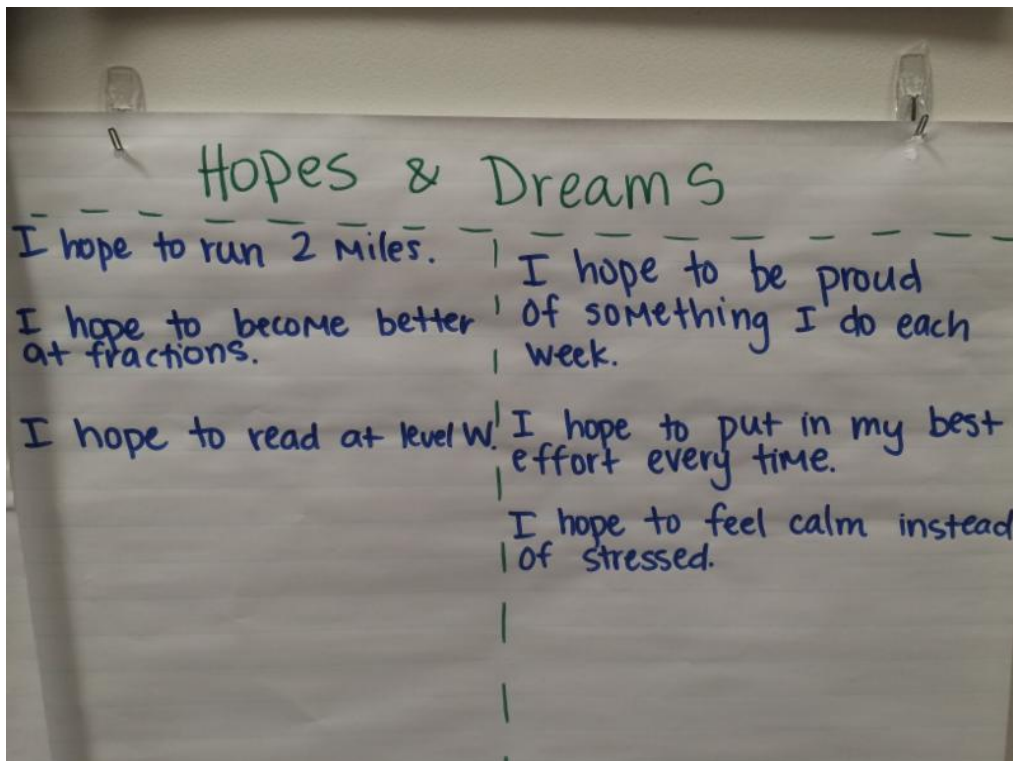 Hopes & Dreams
I hope to run 2 Miles.
I hope to become better
at fractions.
I hope to read at level W.
I hope to be proud
of something I do each
week.
I hope to put in my best
effort every time.
I hope to feel calm instead
of stressed.